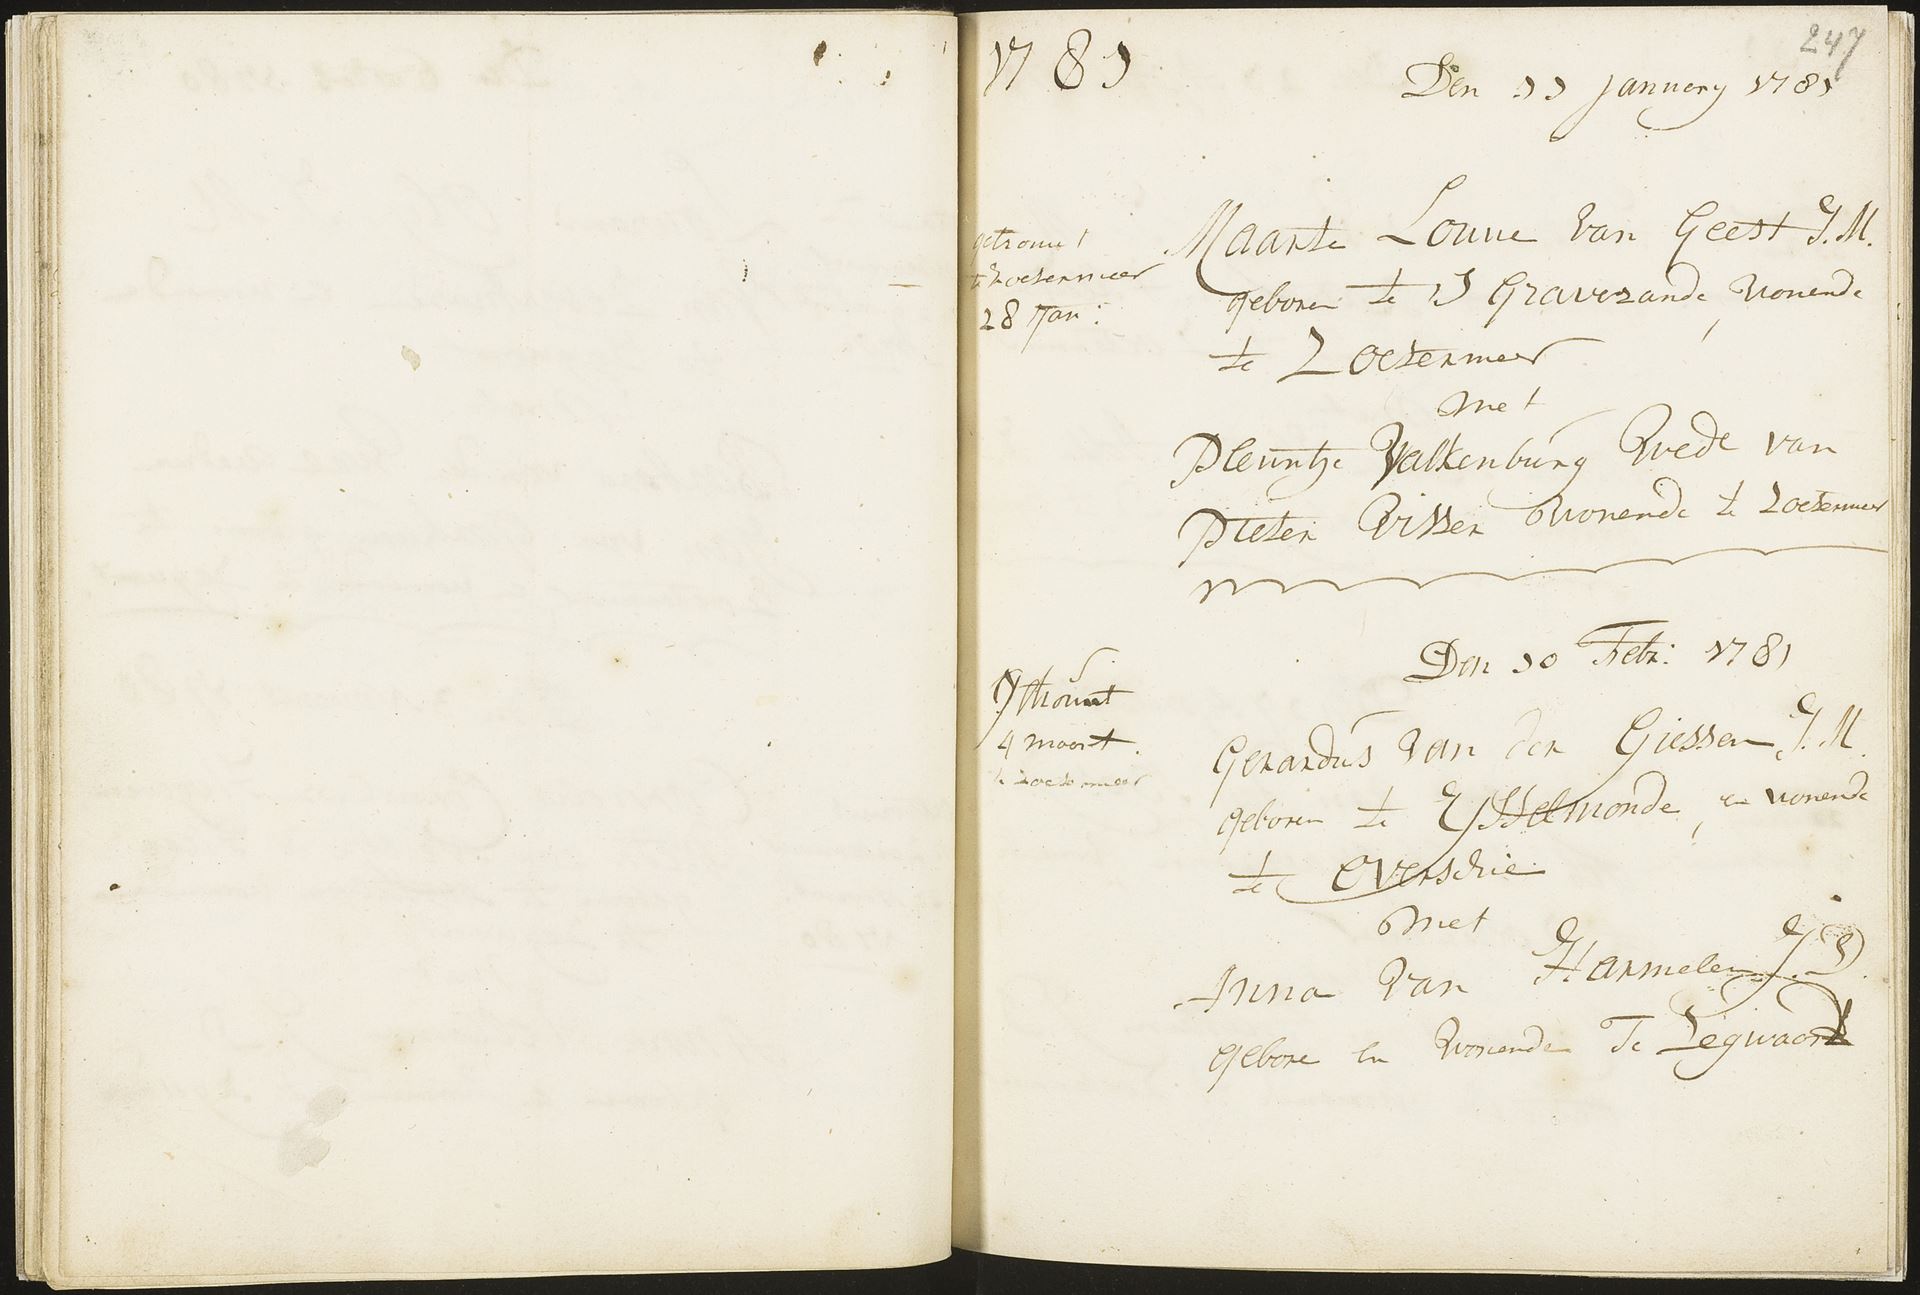 1781
247
Den 11 January 1781
getrouwt
te Zoetermeer
28 Jan:
Maarte Louwe Van Geest J.M.
geboren te S Gravezande, Wonende
te Zoetermeer
met
Pleuntje Valkenburg Wede van
Pieter Visser Wonende te Zoetermeer
Den 10 Febr: 1781
Getrouwt
4 maart.
te Zoetermeer
Gerardus Van der Giessen J.M.
geboren te Ysselmonde, en wonende
te Overschie
met
Anna Van Harmelen J.D.
gebore en Wonende Te Zegwaart